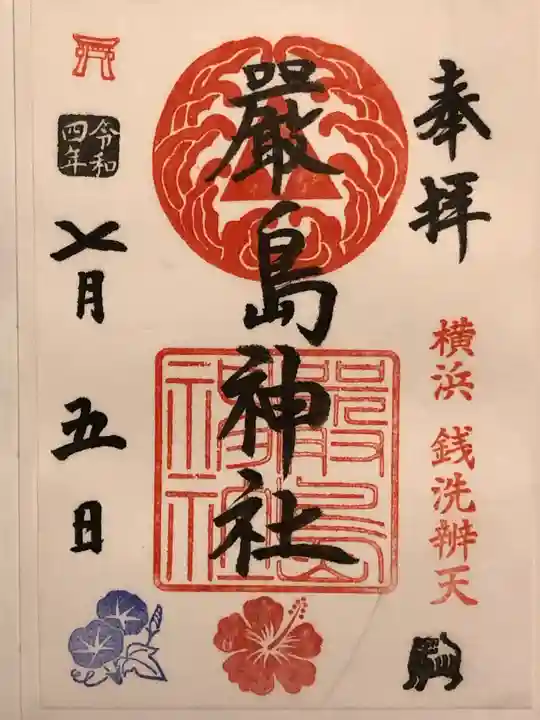 奉拝
横浜 銭洗辨天
嚴島神社
嚴島
神社
令和
四年
七月
五日